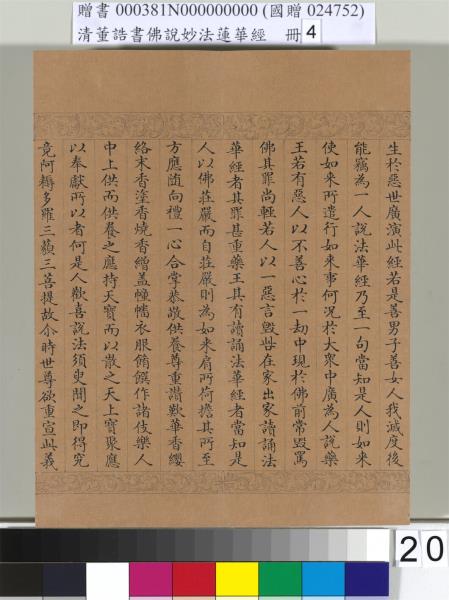 贈書 000381N000000000 (國贈 024752)
清董誥書佛說妙法蓮華經 冊 4
生於惡世廣演此經若是善男子善女人我滅度後
能竊為一人說法華經乃至一句當知是人則如來
使如來所遣行如來事何況於大眾中廣為人說藥
王若有惡人以不善心於一劫中現於佛前常毀罵
佛其罪尚輕若人以一惡言毀呰在家出家讀誦法
華經者其罪甚重藥王其有讀誦法華經者當知是
人以佛莊嚴而自莊嚴則為如來肩所荷擔其所至
方應隨向禮一心合掌恭敬供養尊重讚歎華香纓
絡末香塗香燒香繒蓋幢幡衣服餚饌作諸伎樂人
中上供而供養之應持天寶而以散之天上寶聚應
以奉獻所以者何是人歡喜說法須臾聞之即得究
竟阿耨多羅三藐三菩提故尒時世尊欲重宣此義
20